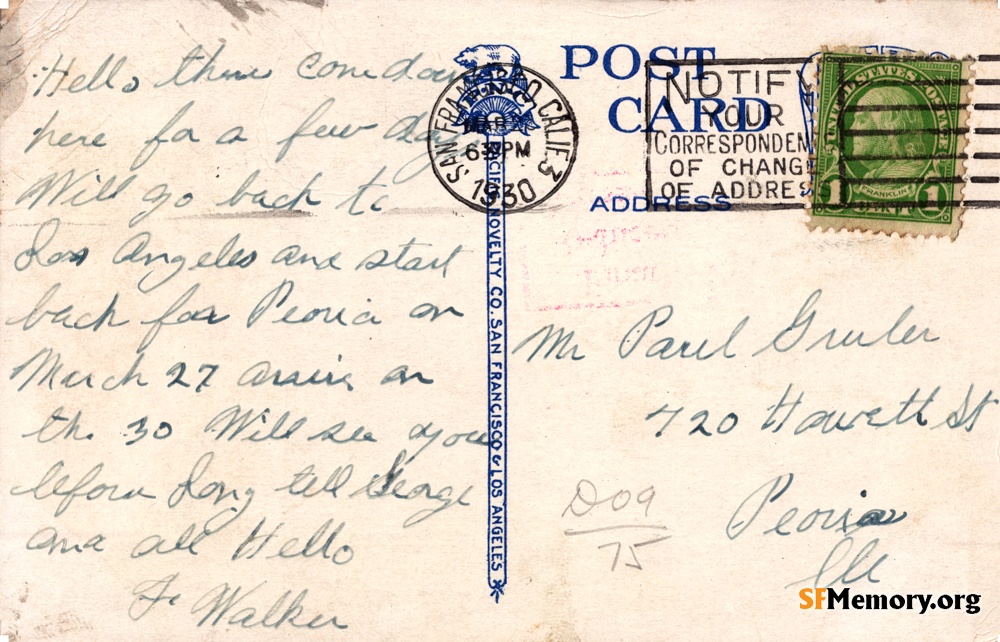 Hello there come day
here for a few days
Will go back to
Los Angeles and start
back for Peoria on
March 27 arrive on
the 30 Will see you
before long tell George
and all Hello
F. Walker
POST
CARD
ADDRESS
SAN FRANCISCO, CALIF. 3
MAR
6 PM
1930
NOTIFY
YOUR
CORRESPONDEN
OF CHANGE
OF ADDRES
UNITED STATES POSTAGE
FRANKLIN
1 1
PACIFIC NOVELTY CO. SAN FRANCISCO & LOS ANGELES
Mr Paul Gruler
720 Howett St
Peoria
Ill
D09
75
SFMemory.org